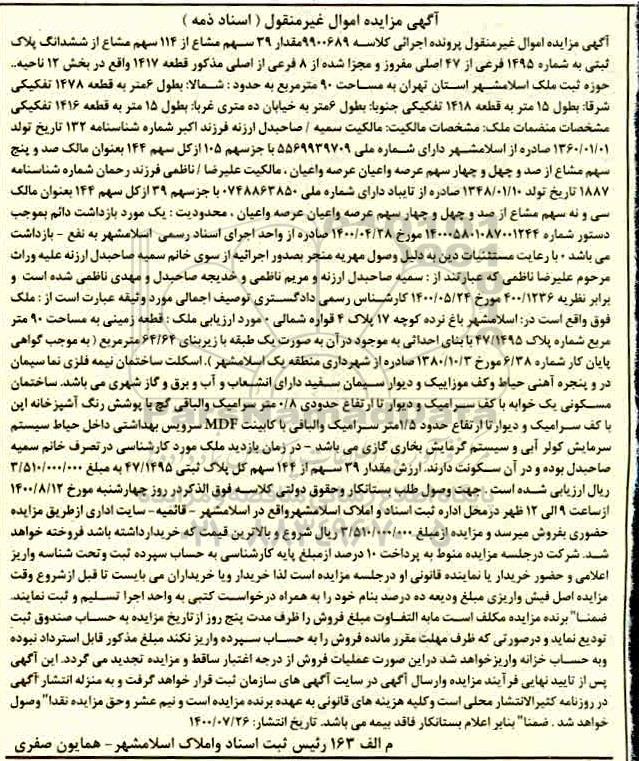 آگهی مزایده اموال غیرمنقول ( اسناد ذمه )
آگهی مزایده اموال غیرمنقول پرونده اجرائی کلاسه ۹۹۰۰۶۸۹مقدار ۳۹ سهم مشاع از ۱۱۴ سهم مشاع از ششدانگ پلاک
ثبتی به شماره ۱۴۹۵ فرعی از ۴۷ اصلی مفروز و مجزا شده از ۸ فرعی از اصلی مذکور قطعه ۱۴۱۷ واقع در بخش ۱۲ ناحیه..
حوزه ثبت ملک اسلامشهر استان تهران به مساحت ۹۰ مترمربع به حدود : شمالا: بطول ۶متر به قطعه ۱۴۷۸ تفکیکی
شرقا: بطول ۱۵ متر به قطعه ۱۴۱۸ تفکیکی جنوبا: بطول ۶متر به خیابان ده متری غربا: بطول ۱۵ متر به قطعه ۱۴۱۶ تفکیکی
مشخصات منضمات ملک: مشخصات مالکیت: مالکیت سمیه / صاحبدل ارزنه فرزند اکبر شماره شناسنامه ۱۳۲ تاریخ تولد
۱۳۶۰/۰۱/۰۱ صادره از اسلامشهر دارای شماره ملی ۵۵۶۹۹۳۹۷۰۹ با جزسهم ۱۰۵ ازکل سهم ۱۴۴ بعنوان مالک صد و پنج
سهم مشاع از صد و چهل و چهار سهم عرصه واعیان عرصه واعیان ، مالکیت علیرضا / ناظمی فرزند رحمان شماره شناسنامه
۱۸۸۷ تاریخ تولد ۱۳۴۸/۰۱/۱۰ صادره از تایباد دارای شماره ملی ۰۷۴۸۸۶۳۸۵۰ با جزسهم ۳۹ ازکل سهم ۱۴۴ بعنوان مالک
سی و نه سهم مشاع از صد و چهل و چهار سهم عرصه واعیان عرصه واعیان ، محدودیت : یک مورد بازداشت دائم بموجب
دستور شماره ۱۴۰۰۰۵۸۰۱۰۸۷۰۰۱۲۴۴ مورخ ۱۴۰۰/۰۴/۲۸ صادره از واحد اجرای اسناد رسمی اسلامشهر به نفع - بازداشت
می باشد ۰ با رعایت مستثنیات دین به دلیل وصول مهریه منجر بصدور اجرائیه از سوی خانم سمیه صاحبدل ارزنه علیه وراث
مرحوم علیرضا ناظمی که عبارتند از : سمیه صاحبدل ارزنه و مریم ناظمی و خدیجه صاحبدل و مهدی ناظمی شده است و
برابر نظریه ۴۰۰/۱۲۳۶ مورخ ۱۴۰۰/۰۵/۲۴ کارشناس رسمی دادگستری توصیف اجمالی مورد وثیقه عبارت است از : ملک
فوق واقع است در: اسلامشهر باغ نرده کوچه ۱۷ پلاک ۴ قواره شمالی ۰ مورد ارزیابی ملک : قطعه زمینی به مساحت ۹۰ متر
مربع شماره پلاک ۴۷/۱۴۹۵ با بنای احداثی به موجود در آن به صورت یک طبقه با زیربنای ۶۴/۶۴ مترمربع ( به موجب گواهی
پایان کار شماره ۶/۳۸ مورخ ۱۳۸۰/۱۰/۳ صادره از شهرداری منطقه یک اسلامشهر ). اسکلت ساختمان نیمه فلزی نما سیمان
در و پنجره آهنی حیاط وکف موزاییک و دیوار سیمان سفید دارای انشعاب و آب و برق و گاز شهری می باشد. ساختمان
مسکونی یک خوابه با کف سرامیک و دیوار تا ارتفاع حدودی ۰/۸متر سرامیک والباقی گچ با پوشش رنگ آشپزخانه اپن
با کف سرامیک و دیوار تا ارتفاع حدود ۱/۵متر سرامیک والباقی با کابینت MDF سرویس بهداشتی داخل حیاط سیستم
سرمایش کولر آبی و سیستم گرمایش بخاری گازی می باشد. - در زمان بازدید ملک مورد کارشناسی درتصرف خانم سمیه
صاحبدل بوده و در آن سکونت دارند. ارزش مقدار ۳۹ سهم از ۱۴۴ سهم کل پلاک ثبتی ۴۷/۱۴۹۵ به مبلغ ۳/۵۱۰/۰۰۰/۰۰۰
ریال ارزیابی شده است . جهت وصول طلب بستانکار وحقوق دولتی کلاسه فوق الذکردر روز چهارشنبه مورخ ۱۴۰۰/۸/۱۲
ازساعت ۹ الی ۱۲ ظهر درمحل اداره ثبت اسناد و املاک اسلامشهرواقع در اسلامشهر - قائمیه- سایت اداری ازطریق مزایده
حضوری بفروش میرسد و مزایده ازمبلغ ۳/۵۱۰/۰۰۰/۰۰۰ ریال شروع و بالاترین قیمت که خریدارداشته باشد فروخته خواهد
شد. شرکت درجلسه مزایده منوط به پرداخت ۱۰ درصد ازمبلغ پایه کارشناسی به حساب سپرده ثبت وتحت شناسه واریز
اعلامی و حضور خریدار یا نماینده قانونی او درجلسه مزایده است لذا خریدار ویا خریداران می بایست تا قبل ازشروع وقت
مزایده اصل فیش واریزی مبلغ ودیعه ده درصد بنام خود را به همراه درخواست کتبی به واحد اجرا تسلیم و ثبت نمایند.
ضمنا" برنده مزایده مکلف است مابه التفاوت مبلغ فروش را ظرف مدت پنج روز ازتاریخ مزایده به حساب صندوق ثبت
تودیع نماید و درصورتی که ظرف مهلت مقرر مانده فروش را به حساب سپرده واریز نکند مبلغ مذکور قابل استرداد نبوده
وبه حساب خزانه واریزخواهد شد دراین صورت عملیات فروش از درجه اعتبار ساقط و مزایده تجدید می گردد. این آگهی
پس از تایید نهایی فرآیند مزایده وارسال آگهی در سایت آگهی های سازمان ثبت قرار خواهد گرفت و به منزله انتشار آگهی
در روزنامه کثیرالانتشار محلی است وکلیه هزینه های قانونی به عهده برنده مزایده است و نیم عشر وحق مزایده نقدا" وصول
خواهد شد . ضمنا" بنابر اعلام بستانکار فاقد بیمه می باشد. تاریخ انتشار: ۱۴۰۰/۰۷/۲۶
م الف ۱۶۳ رئیس ثبت اسناد واملاک اسلامشهر- همایون صفری